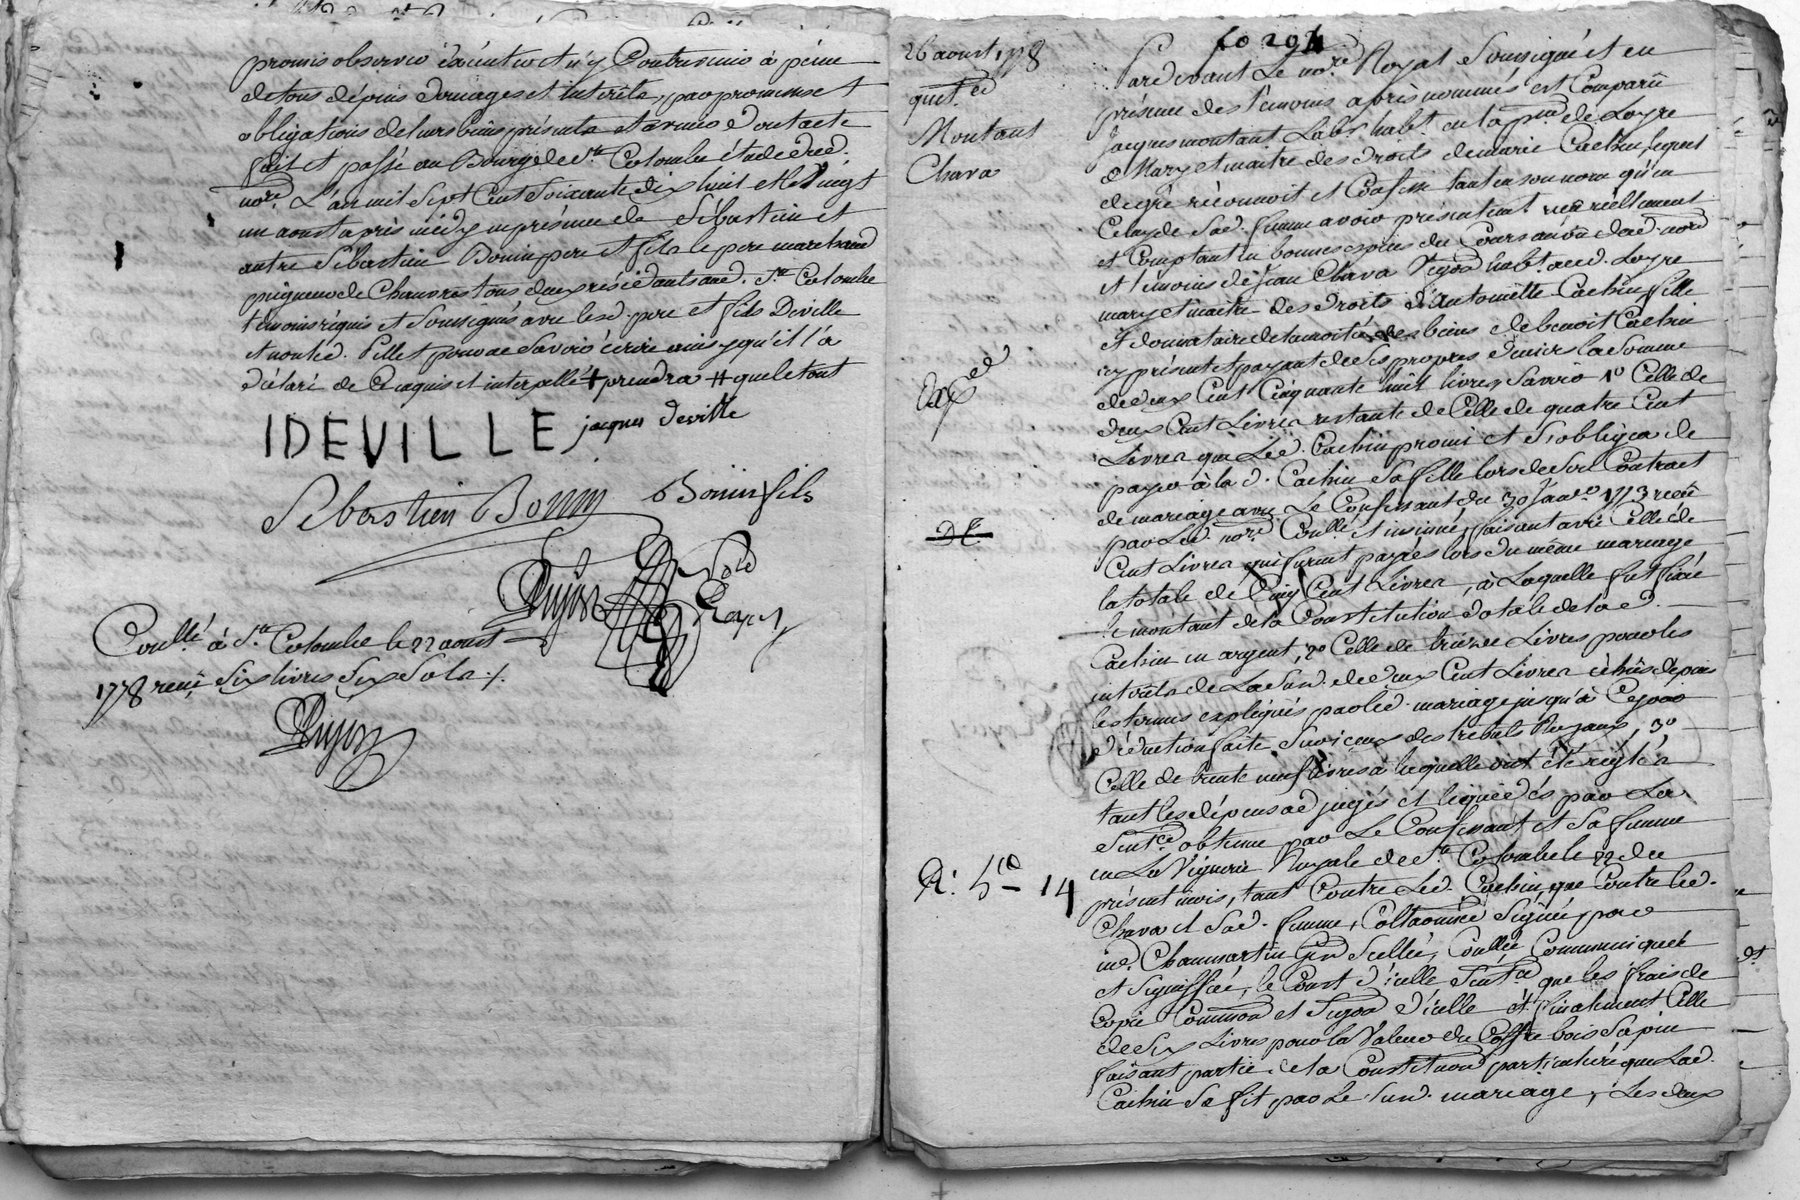 promis observer éxécuter et n'y Contrevenir à peine
de tous dépens domages et interêts, par promesse et
obligations de leurs biens présents et avenir dont acte
fait et passé au Bourg de Ste Colombe étude dud.
nore. L'an mil Sept Cent Soixante dix huit et le vingt
un aoust après midy en présence de Sébastien et
autre Sébastien Bonin pere et fils le pere marchand
peigneur de Chanvres tous deux résidants aud. Ste Colombe
temoins réquis et Soussignés avec lesd. pere et fils Deville
et non led. Pillet pour ne Savoir écrire ainsy qu'il l'a
déclaré de Ce aquis et interpellé + prendra # que le tout
IDEVILLE jacques deville
Sebastien Bonin Bonin fils
Pujon nore Royal
Conllé à Ste Colombe le 22 aoust
1778 reçu Six livres Six Sols ./.
Pujon
fo 294
26 aoust 1778
quitt.ce
Montant
Chava
Exp.ed
R: 5 s 14
Pardevant Le nore Royal Soussigné et en
présence des témoins après nommés est Comparu
Jacques montant Labr. habt. en la psse de Loyre
Mary et maitre des droits de marie Cachin lequel
de gré réconnoit et Confesse tant en son nom qu'en
Celuy de Sad. femme avoir présentement reçu réellement
et Comptant en bonnes espèces du Cours au vû dud. nore
et témoins de Jean Chava Vigon habt. aud. Loyre
mary et maitre des droits d'Antoinette Cachin fille
et donnataire de la moitié des biens de benoit Cachin
icy présent et payant de Ses propres deniers la Somme
de deux Cent Cinquante huit livres, Savoir 1o Celle de
deux Cent Livres restante de Celle de quatre Cent
Livres que Led. Cachin promi et S'obligea de
payer à la d. Cachin Sa fille lors de Son Contract
de mariage avec Le Confessant du 30 Janer 1773 reçu
par Led. nore. Conllé. et insinué, faisant avec Celle de
Cent Livres qui furent payées lors du même mariage
la totale de Cinq Cent Livres, à Laquelle fut fixé
le montant de la Constitution dotale de lad.
Cachin en argent, 2o Celle de treize Livres pour les
intérêts de La Sud. de deux Cent Livres échus depuis
les termes expliqués par led. mariage jusqu'à Ce jour
déduction faite Sur iceux des tributs Royaux, 3o
Celle de trente neuf livres à laquelle ont été réglés
tant les dépens adjugés et liquidés par La
Sentce. obtenue par Le Confessant et Sa femme
en La Viguerie Royale de Ste Colombe le 22 du
présent mois, tant Contre Led. Cachin que Contre led.
Chava et Sad. femme, Collationnée Signée par
me. Chaumartin Scellée, Conllée, Communiquée
et Signiffiée, le Cout d'icelle Sentce que les frais de
Copie Common et Signon d'icelle et finalement Celle
de Six Livres pour la Valeur du Coffre bois Sapin
faisant partie de la Constituon particuliere que Lad.
Cachin Se fit par Le Sud. mariage, Les deux